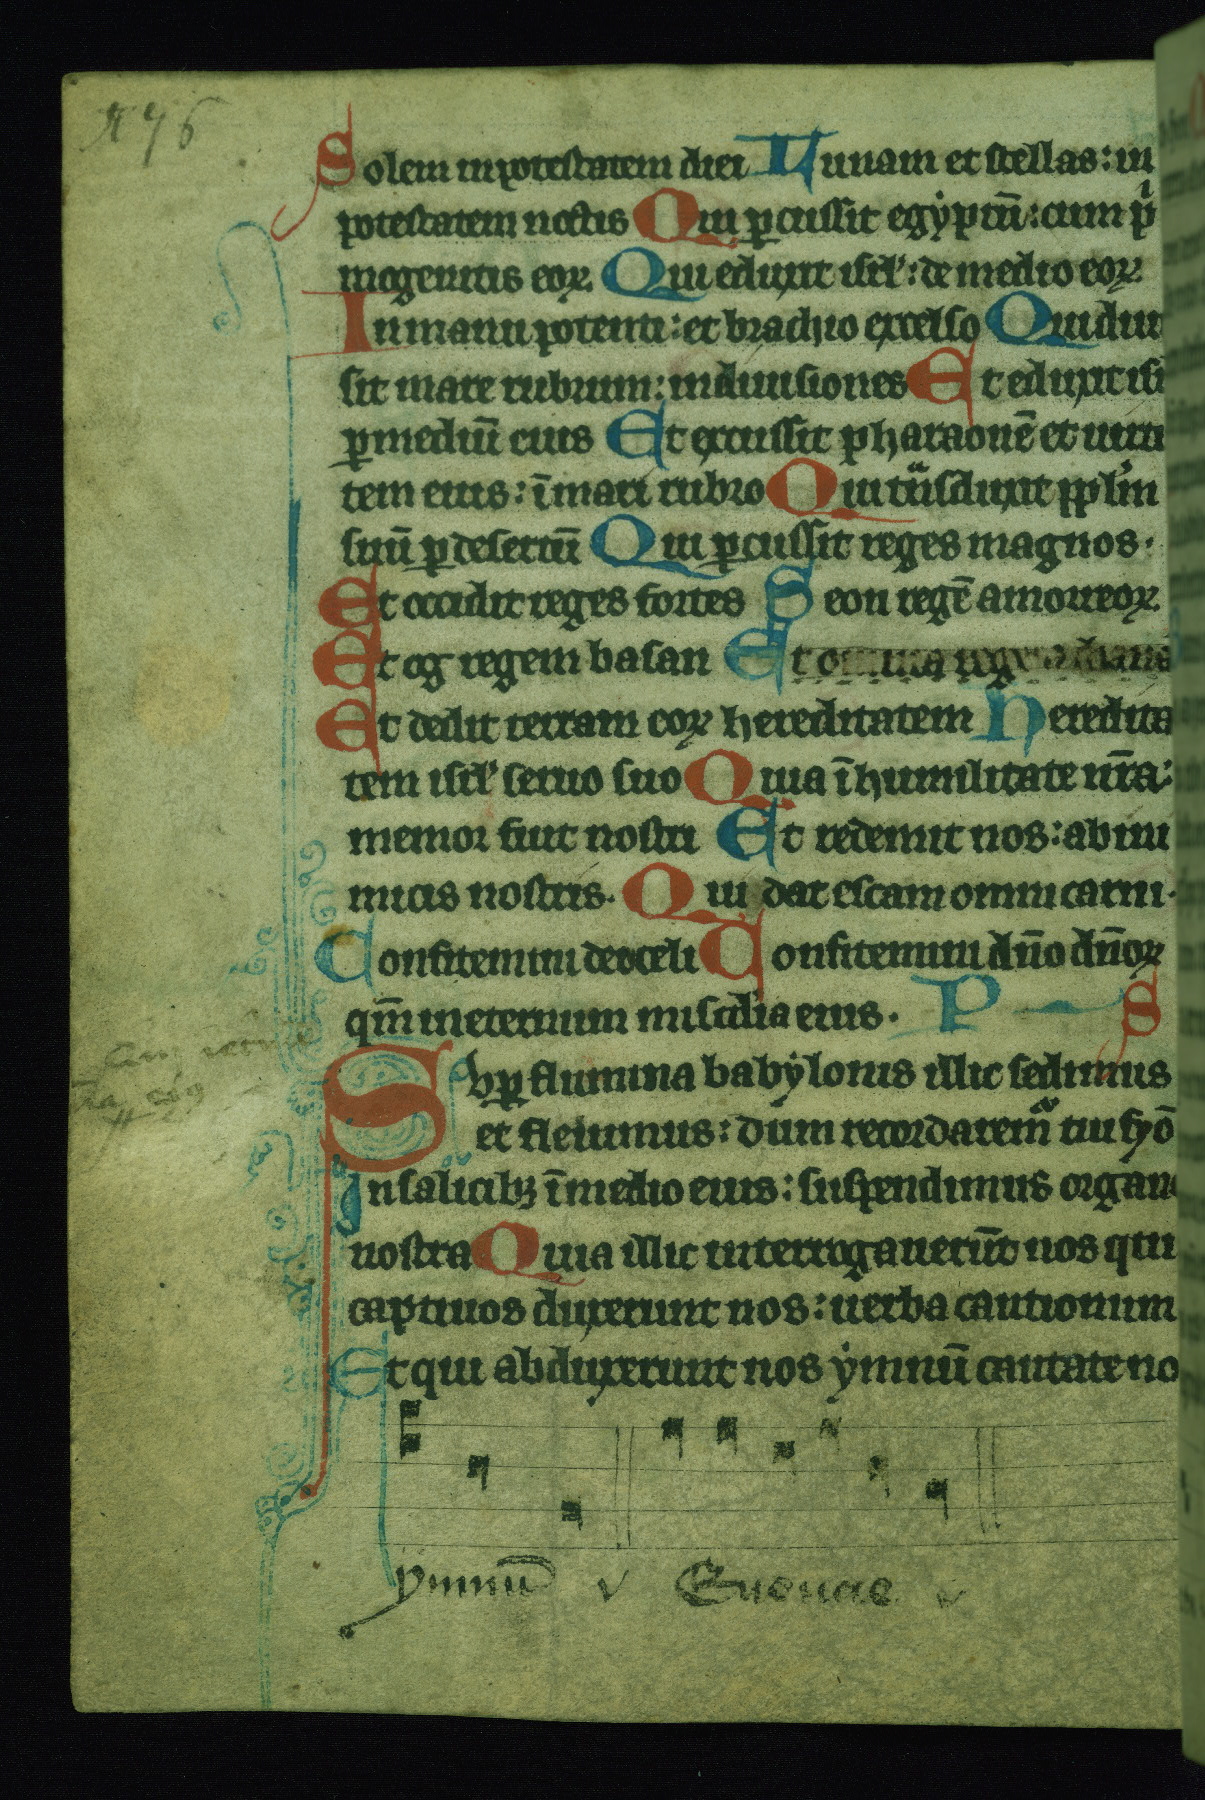 176
Solem in potestatem diei Lunam et stellas: in
potestatem noctis Qui ꝑcussit egẏptū: cum pⁱ
mogenitis eoꝝ Qui eduxit isrl': de medio eoꝝ
In manu potenti: et brachio excelso Qui diui
sit mare rubrum: in diuisiones Et eduxit isr
ꝑ mediū eius Et excussit pharaonē et uirtu
tem eius: ī mari rubro Qui tͣusduxit pp̄lm
suū ꝑ desertū Qui ꝑcussit reges magnos.
Et occidit reges fortes Seon regē amorreoꝝ
Et og regem basan Et omnia regna
Et dedit terram eoꝝ hereditatem Heredita
tem isrl' seruo suo Quia ī humilitate nr̄a:
memor fuit nostri Et redemit nos: ab ini
micis nostris. Qui dat escam omni carni.
Confitemini deo celi Confitemini dn̄o dn̄oꝝ
qm̄ in eternum misc̄dia eius. P S
Svꝑ flumina babẏlonis illic sedimus
et fleuimus: dum recordaremͬ tui syō
In salicibꝫ ī medio eius: suspendimus organ
nostra Quia illic interrogauerūt nos qui
captiuos duxerunt nos: uerba cantionum
Et qui abduxerunt nos ẏmnū cantate no
ymnū v Euouae v